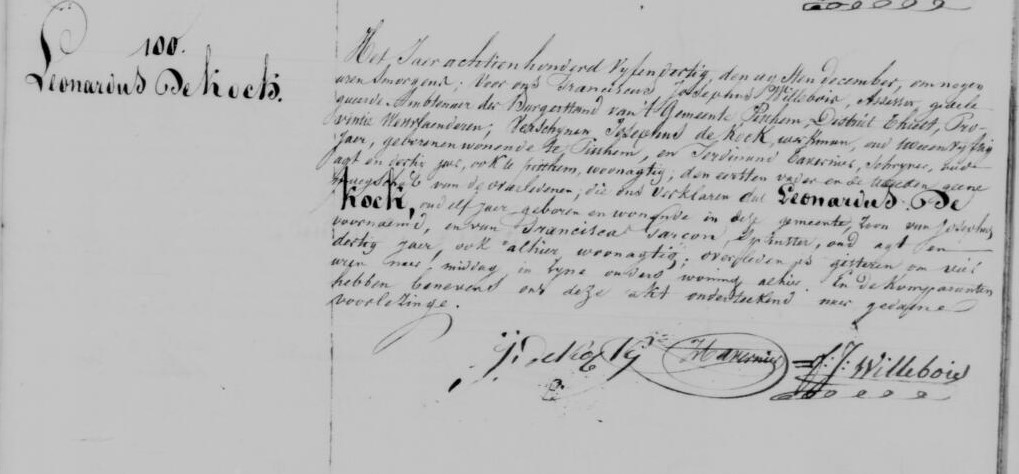 100.
Leonardus De Kock.
Het Jaer achttien honderd vyfendertig, den december, om negen
uren smorgens; Voor ons Franciscus Josephus Willebois, Assessor, gedele
gueerde Ambtenaer der Burgerstand van 't Gemeente Pitthem, District Thielt, Pro-
vintie Westvlaenderen; Verschynen Josephus de Kock, werkman, oud
Jaer, geboren en wonende te Pitthem, en Ferdinand Tavernier, Schryver, oud
agt en dertig jaer, ook te pitthem, woonagtig; den eersten vader en de tweeden geene
maegschap van de overledenen; die ons verklaren dat Leonardus De
Kock, oud elf jaer geboren en wonende in deze gemeente, Zoon van Josephus
voornoemd, en van Francisca Sarcon, Spinster, oud agt en
dertig jaer, ook alhier woonagtig; overleden is gisteren om vier
uren naer middag in zyne ouders woning alhier. En de komparanten
hebben benevens ons deze akt onderteekend naer gedaene
voorlezinge.
J: de Kock
Tavernier
F: J: Willebois